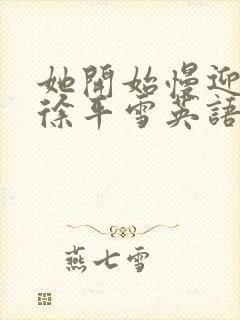 她開始慢迎
徐平雪英語
燕七雪